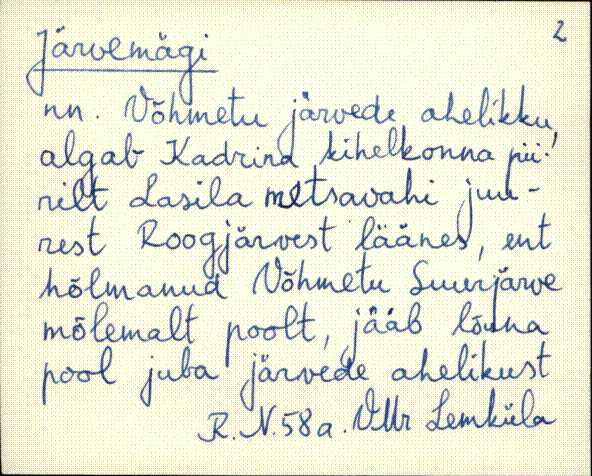 Järvemägi 2
nn. Võhmetu järvede ahelikku,
algab Kadrina kihelkonna pii-
rilt Lasila metsavahi juu-
rest Roogjärvest läänes, ent
hõlmanud Võhmetu Suurjärve
mõlemalt poolt, jääb lõuna
pool juba järvede ahelikust
R. N. 58 a. VMr Lemküla